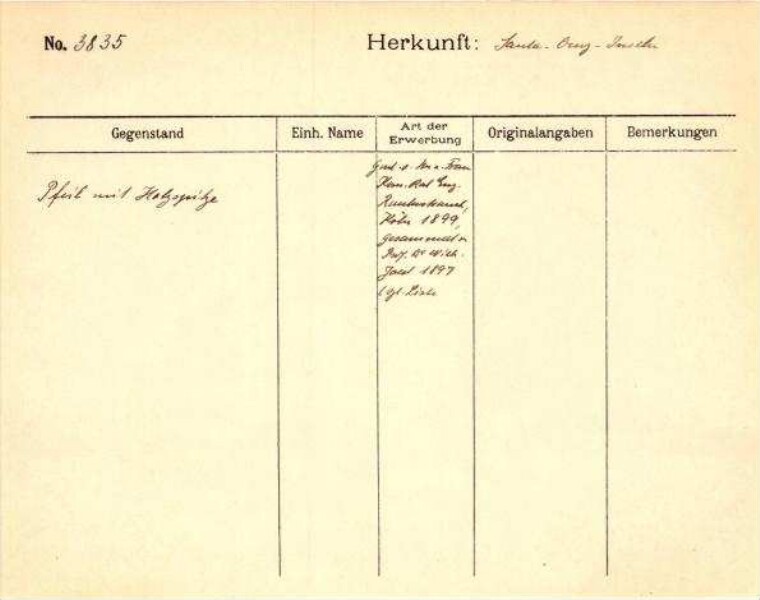 No. 3835
Herkunft: Santa-Cruz-Inseln
Gegenstand
Einh. Name
Art der
Erwerbung
Originalangaben
Bemerkungen
Pfeil mit Holzspitze
Kom. Rat Eug.
Rautenstrauch,
Köln 1899,
gesammelt v.
Prof. Dr Wilh.
Joest 1897
Liste